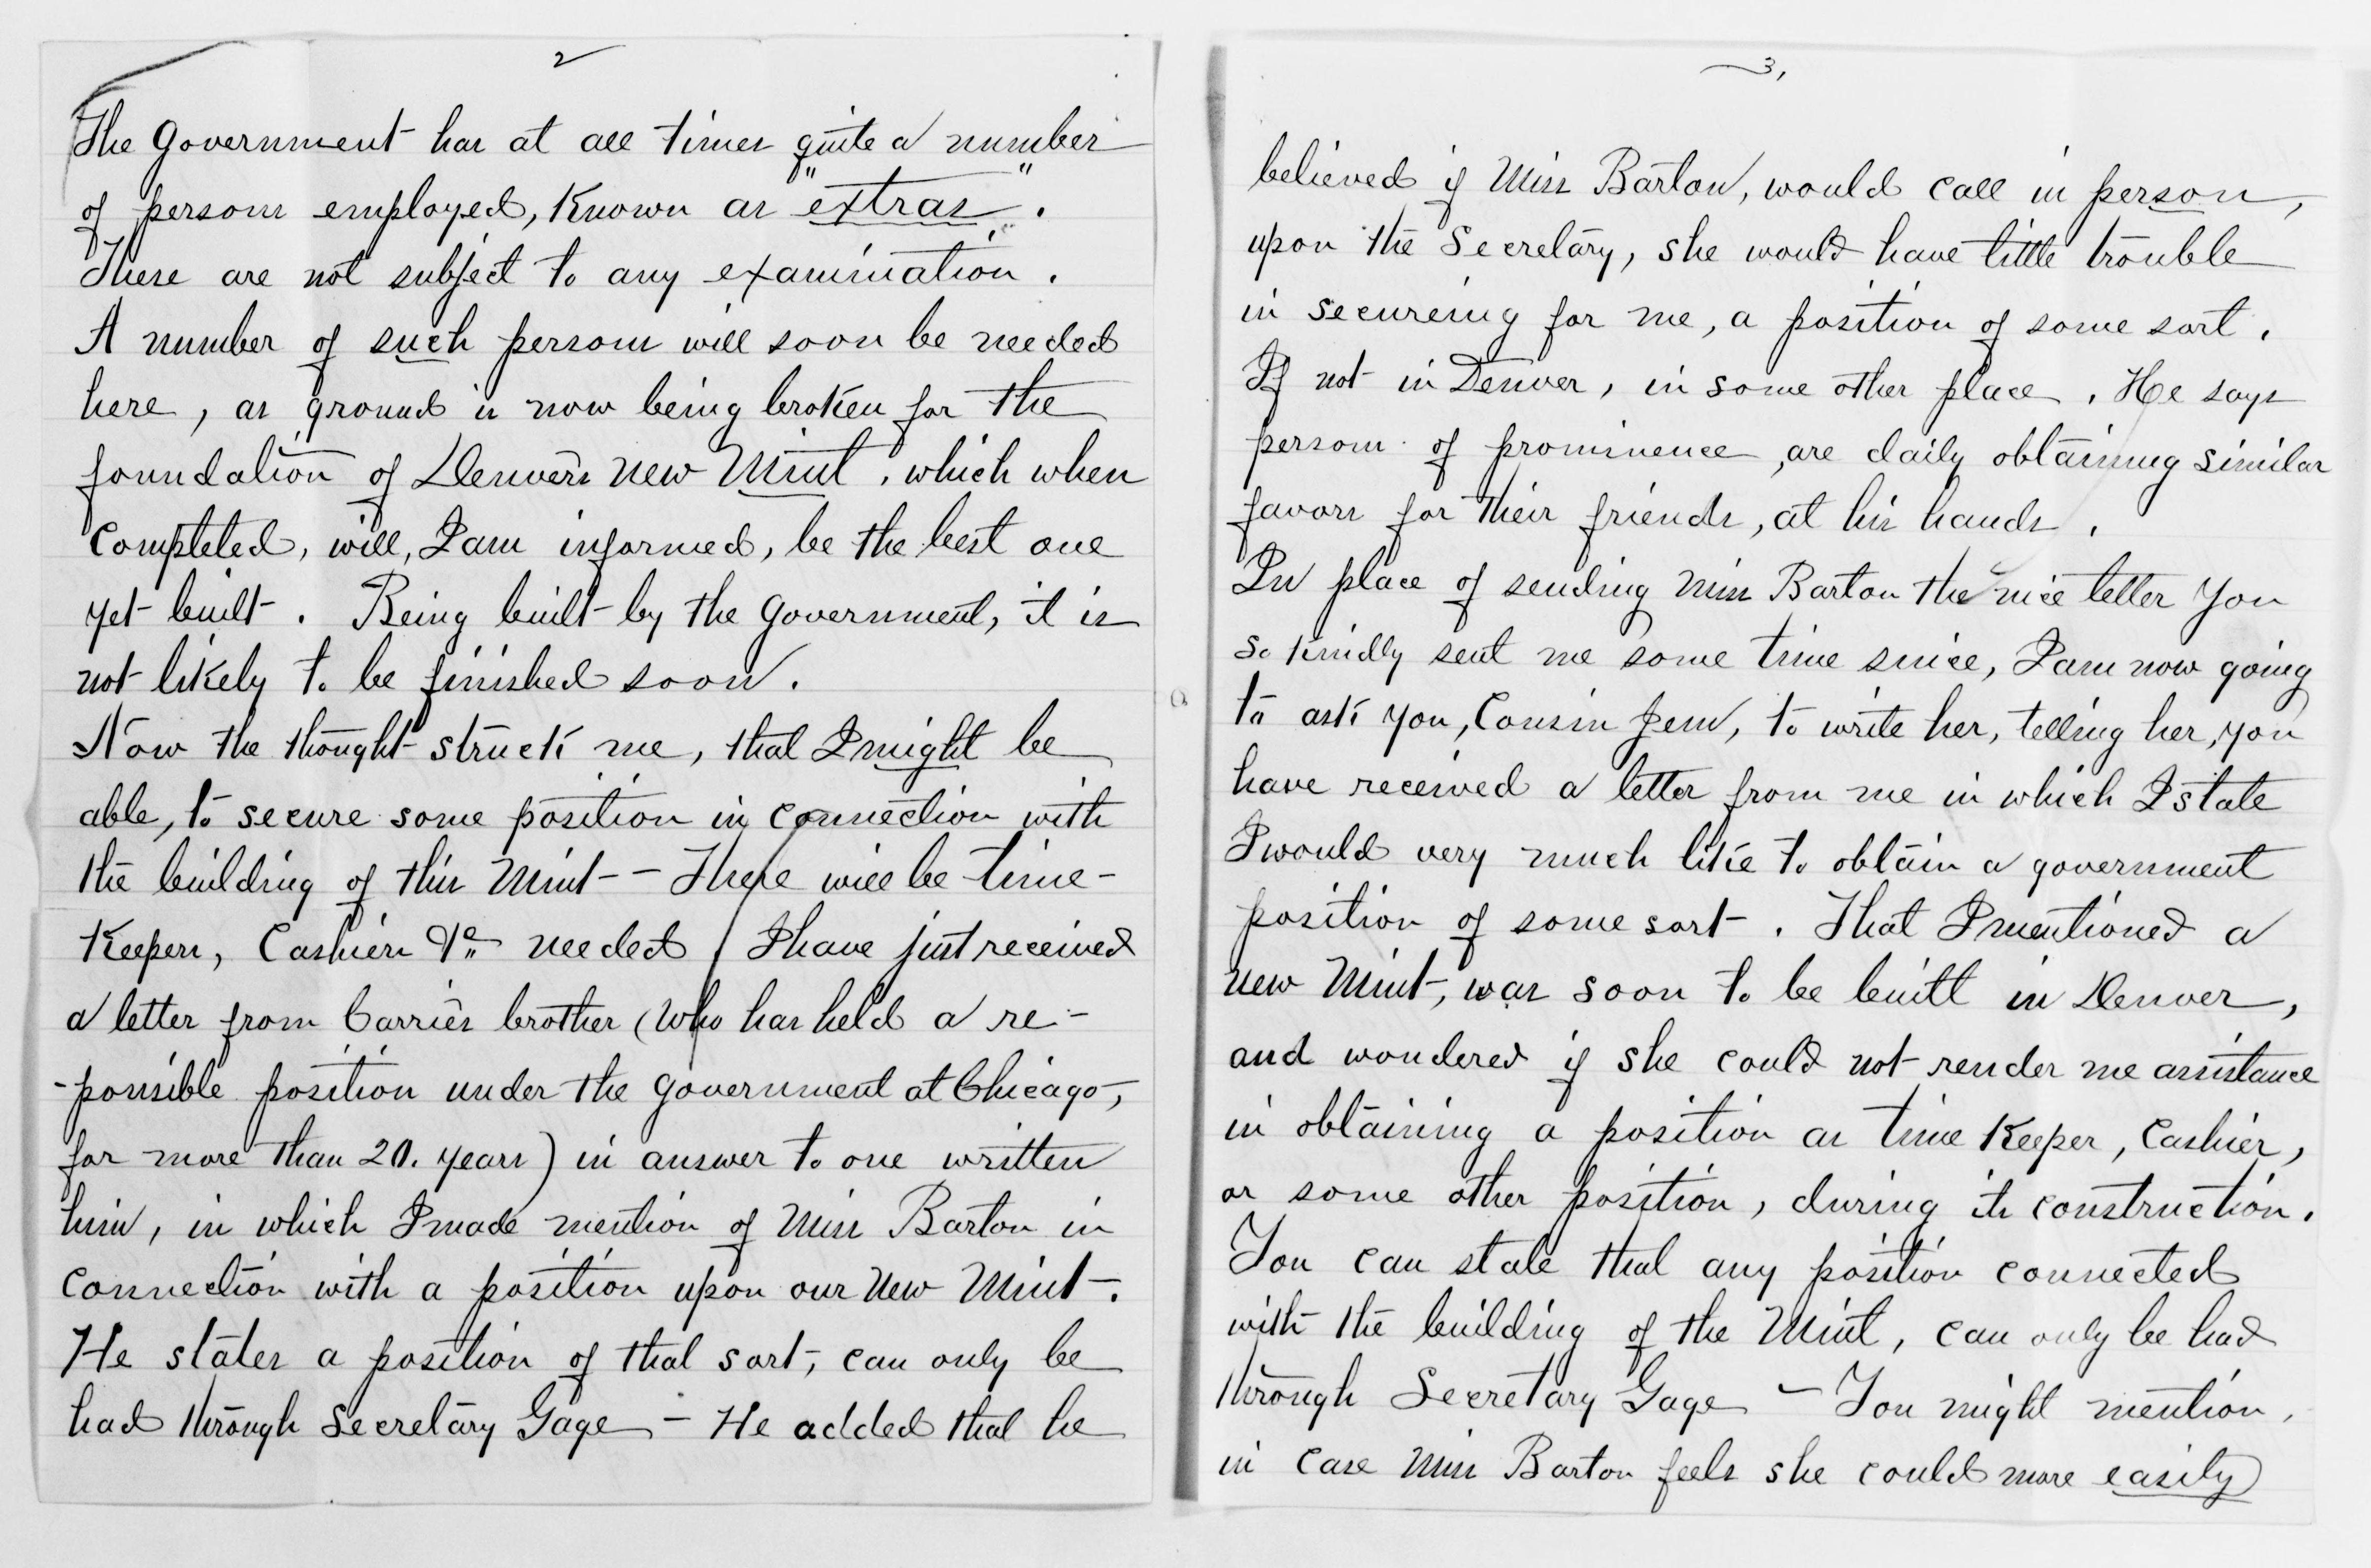 2
The Government has at all times quite a number
of persons employed, known as "extras".
These are not subject to any examination.
A number of such persons will soon be needed
here, as ground is now being broken for the
foundation of Denver's new Mint, which when
completed, will, I am informed, be the best one
yet built. Being built by the Government, it is
not likely to be finished soon.
Now the thought struck me, that I might be
able, to secure some position in connection with
the building of this Mint -- There will be time-
keepers, Cashiers &c needed / I have just received
a letter from Carrie's brother (who has held a re-
-ponsible position under the government at Chicago,
for more than 20. years) in answer to one written
him, in which I made mention of Miss Barton in
connection with a position upon our new Mint.
He states a position of that sort, can only be
had through Secretary Gage - He added that he
3,
believed if Miss Barton, would call in person,
upon the Secretary, she would have little trouble
in secureing for me, a position of some sort.
If not in Denver, in some other place. He says
persons of prominence, are daily obtaining similar
favors for their friends, at his hands.
In place of sending Miss Barton the nice letter you
so kindly sent me some time since, I am now going
to ask you, Cousin Jem, to write her, telling her, you
have received a letter from me in which I state
I would very much like to obtain a government
position of some sort. That I mentioned a
new Mint, was soon to be built in Denver,
and wondered if she could not render me assistance
in obtaining a position as time keeper, Cashier,
or some other position, during its construction.
You can state that any position connected
with the building of the Mint, can only be had
through Secretary Gage - You might mention,
in case Miss Barton feels she could more easily